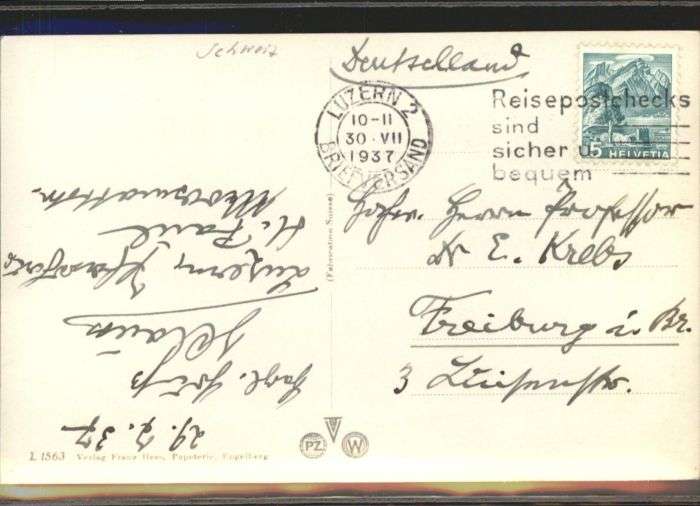 Schweiz
Deutschland
LUZERN 2
10-11
30·VII
1937
BRIEFVERSAND
Reisepostchecks
sind
sicher u.
bequem
15 HELVETIA
Herrn Professor
Dr E. Krebs
Freiburg i/ Br.
3 Luisenstr.
29. 7. 37
Luzern,
H. Paul
(Fabrication Suisse)
PZ W
L 1563 Verlag Franz Hess, Papeterie, Engelberg